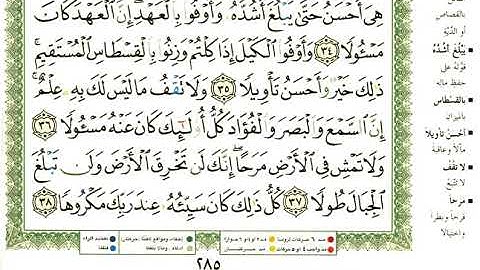 هِىَ أَحْسَنُ حَتَّىٰ يَبْلُغَ أَشُدَّهُۥ وَأَوْفُوا۟ بِٱلْعَهْدِ إِنَّ ٱلْعَهْدَ كَانَ
مَسْـُٔولًا ٣٤ وَأَوْفُوا۟ ٱلْكَيْلَ إِذَا كِلْتُمْ وَزِنُوا۟ بِٱلْقِسْطَاسِ ٱلْمُسْتَقِيمِ
ذَٰلِكَ خَيْرٌ وَأَحْسَنُ تَأْوِيلًا ٣٥ وَلَا تَقْفُ مَا لَيْسَ لَكَ بِهِۦ عِلْمٌ
إِنَّ ٱلسَّمْعَ وَٱلْبَصَرَ وَٱلْفُؤَادَ كُلُّ أُو۟لَـٰٓئِكَ كَانَ عَنْهُ مَسْـُٔولًا ٣٦
وَلَا تَمْشِ فِى ٱلْأَرْضِ مَرَحًا إِنَّكَ لَن تَخْرِقَ ٱلْأَرْضَ وَلَن تَبْلُغَ
ٱلْجِبَالَ طُولًا ٣٧ كُلُّ ذَٰلِكَ كَانَ سَيِّئُهُۥ عِندَ رَبِّكَ مَكْرُوهًا ٣٨
بالقصاص
أو الدّيّة
يَبْلُغَ أَشُدَّهُ
قوّته على
حفظ ماله
بالقسطاس
بالميزان
أحسن تأويلا
مآلا وعاقبة
لا تقف
لا تتّبع
مرحا
فرحا وبطرا
واختيالا
٢٨٥